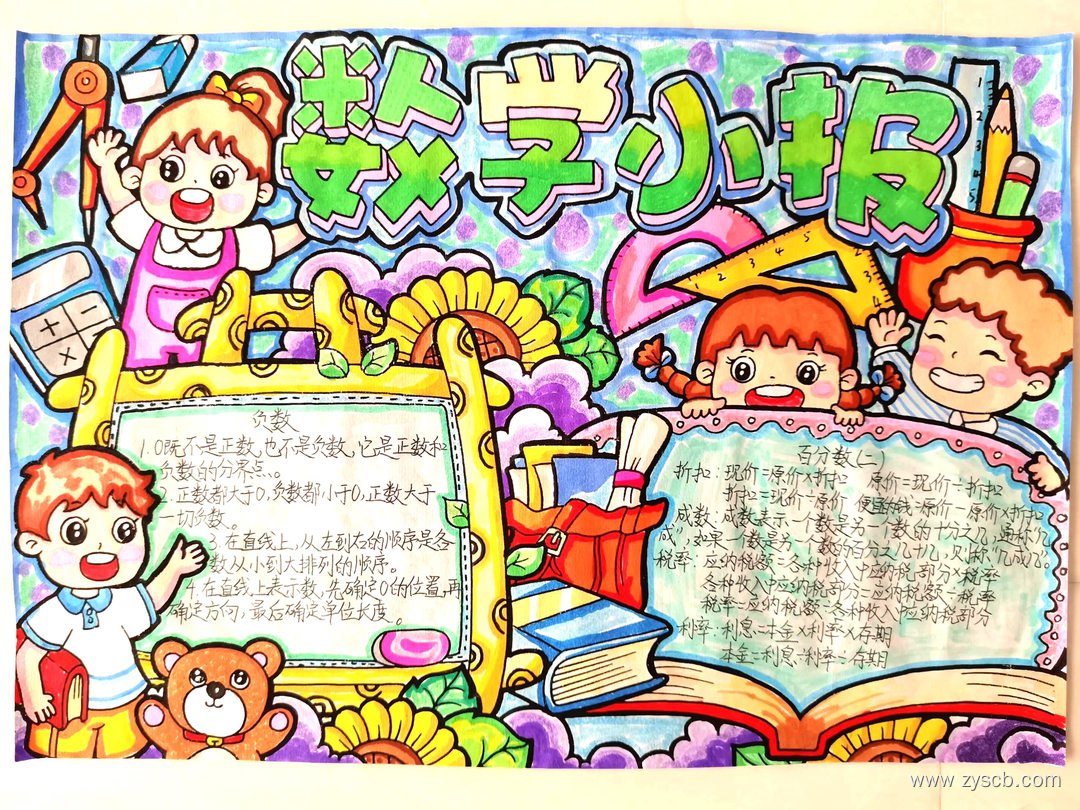 数学小报
负数
1.0既不是正数,也不是负数,它是正数和
负数的分界点。
2.正数都大于0,负数都小于0,正数大于
一切负数。
3.在直线上,从左到右的顺序是各
数从小到大排列的顺序。
4.在直线上表示数,先确定0的位置,再
确定方向,最后确定单位长度。
百分数(二)
折扣:现价=原价×折扣 原价=现价÷折扣
折扣=现价÷原价 便宜的钱=原价-原价×折扣
成数:成数表示一个数是另一个数的十分之几,通称“几
成”,如果一个数是另一个数的百分之几十几,则称“几成几”。
税率:应纳税额=各种收入中应纳税部分×税率
各种收入中应纳税部分=应纳税额÷税率
税率=应纳税额÷各种收入中应纳税部分
利率:利息=本金×利率×存期
本金=利息÷利率÷存期
www.zyscb.com